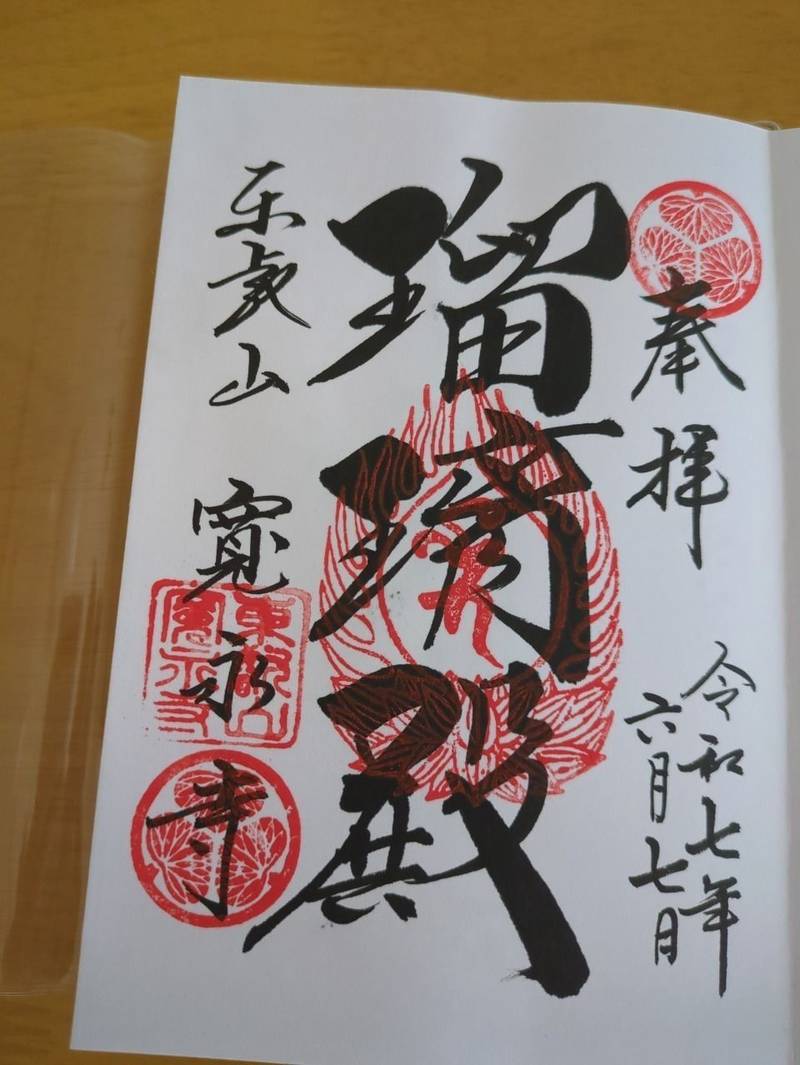 奉拝
令和七年
六月七日
瑠璃殿
東叡山
寛永寺
東叡山
寛永寺